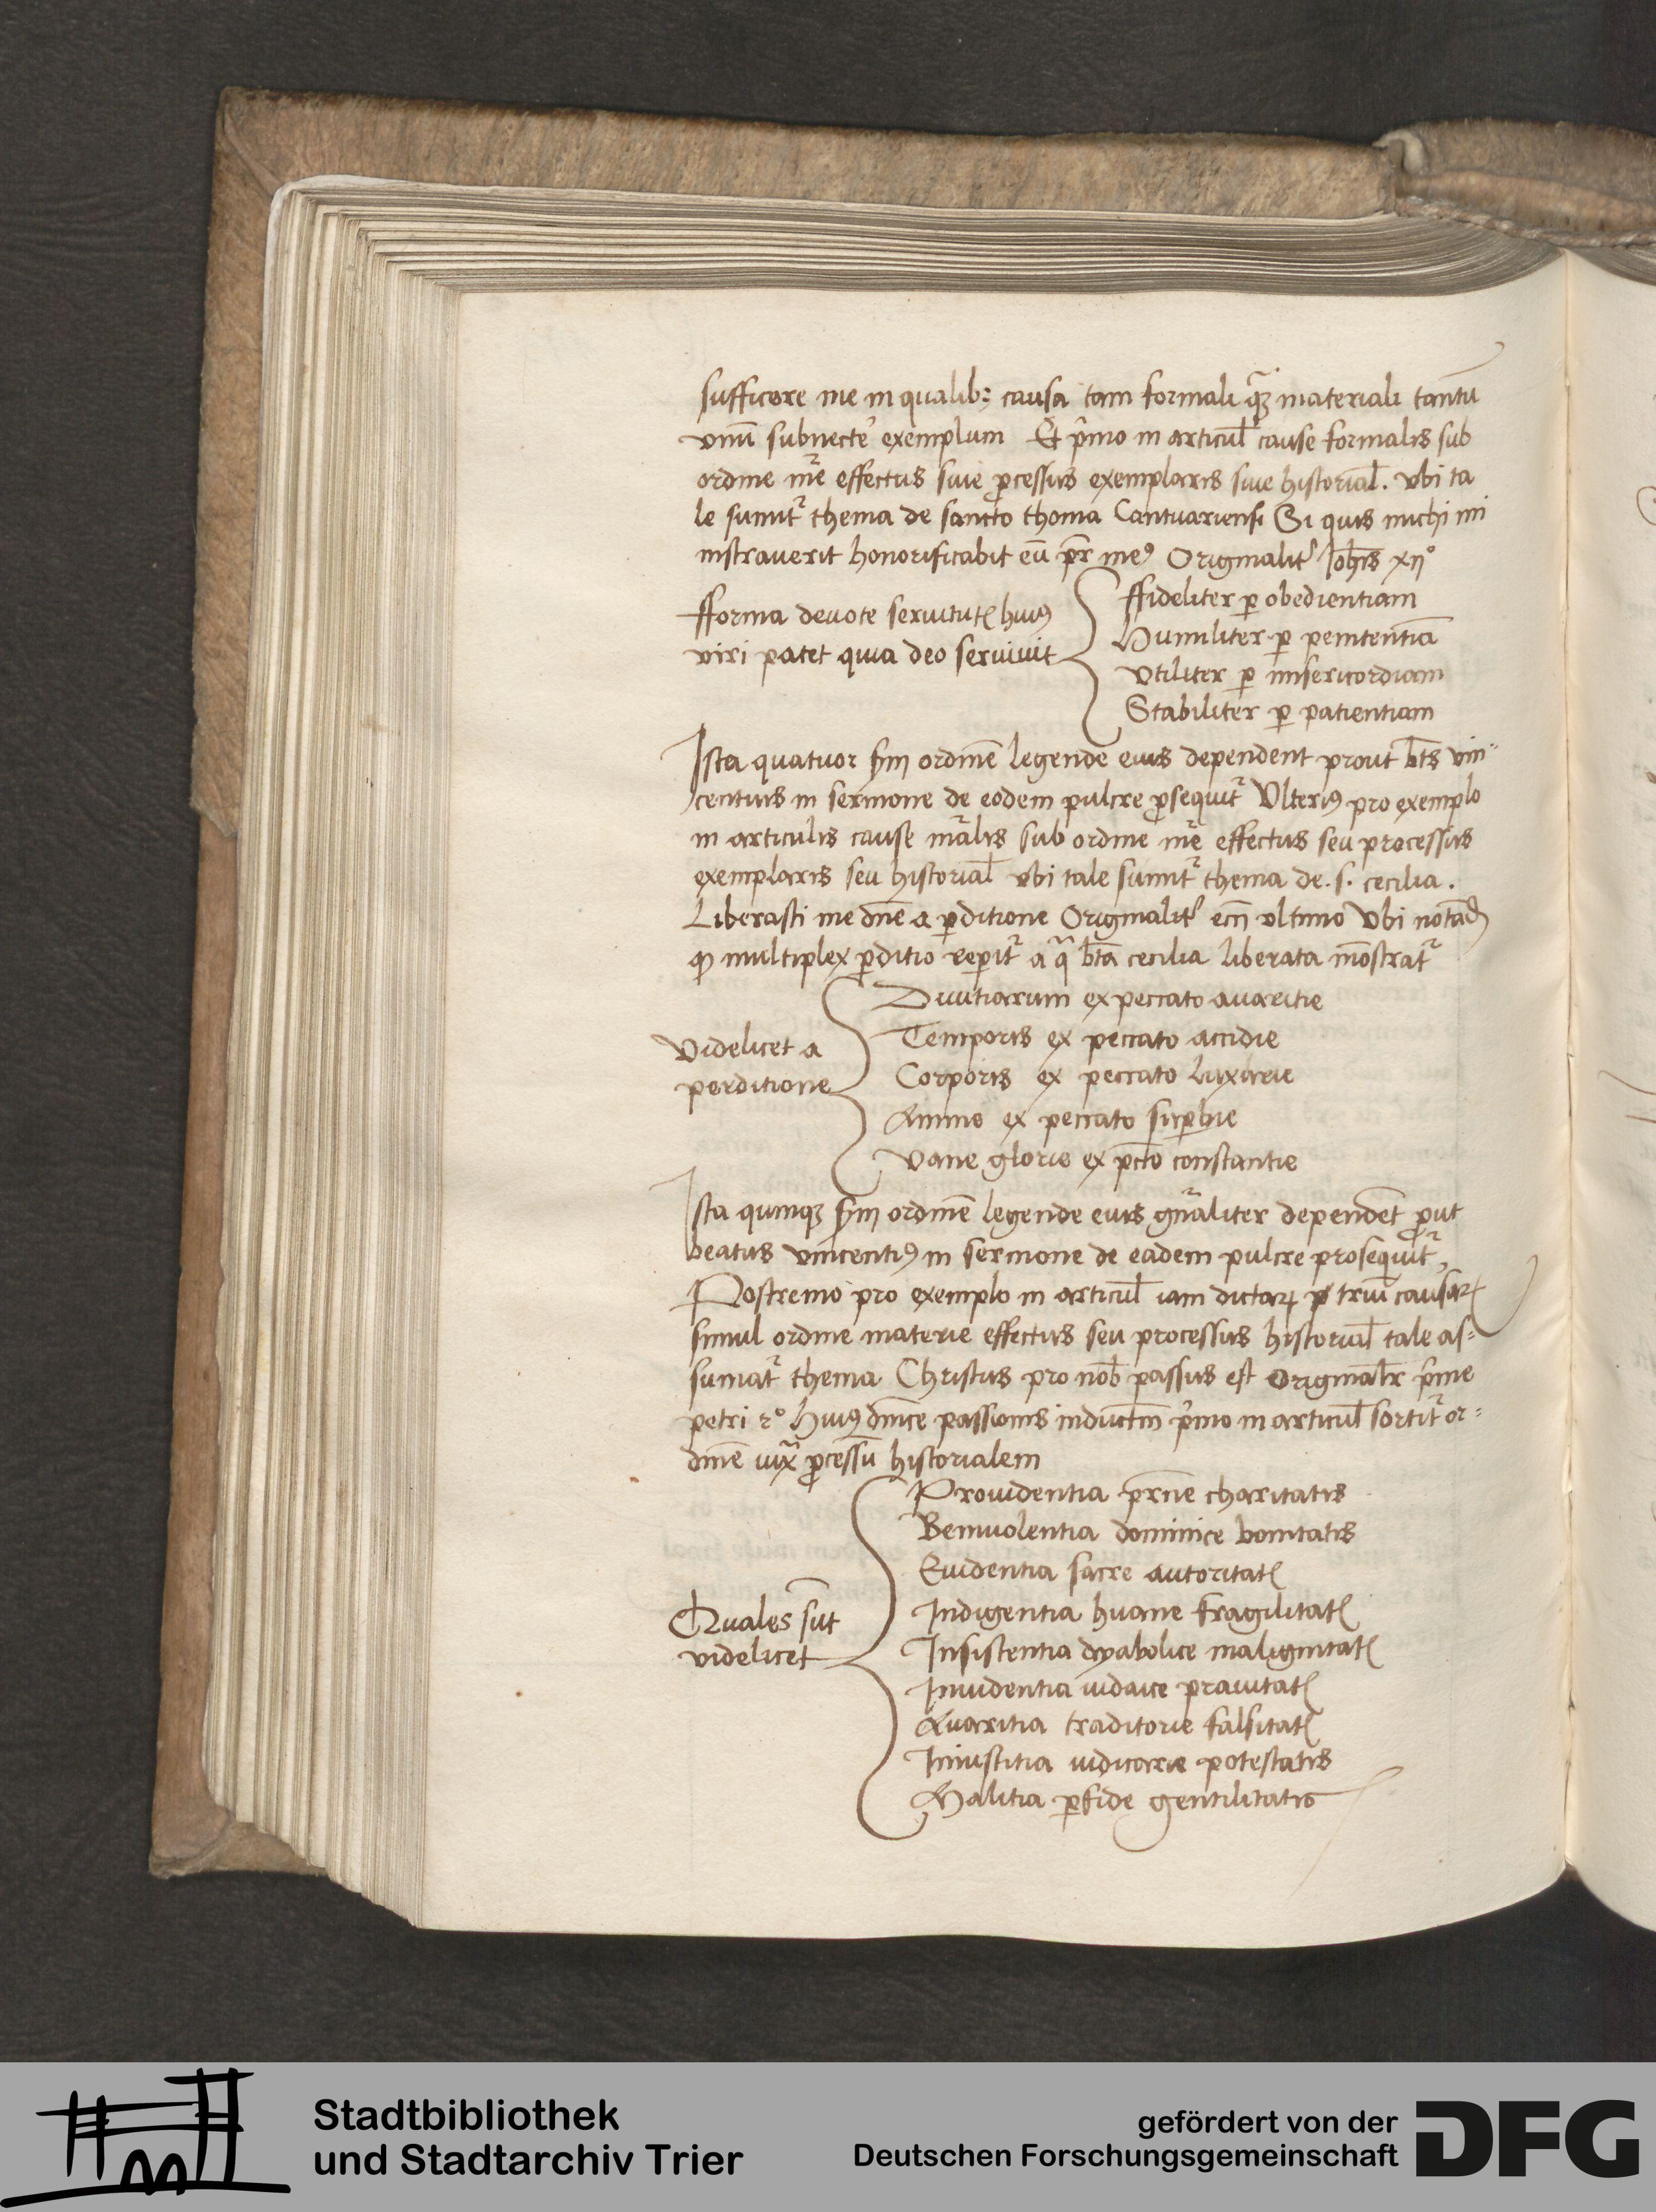 sufficere me in qualibꝫ causa tam formali qᷓꝫ materiali tantū
vnū subnecte᷑ exemplum Et pͥmo in articul̄ cause formalis sub
ordine mꝛ̄e effectus siue ꝓcessus exemplaris siue historial̄. vbi ta
le sumit᷑ thema de sancto thoma Cantuariensi Si quis michi mi
nistrauerit honorificabit eū pr̄ meꝰ Originalit᷑ Ioh̄is xijᵒ
fforma deuote seruitutꝭ huiꝰ
viri patet quia deo seruiuit
ffideliter ꝑ obedientiam
Humiliter ꝑ penitentiā
Vtiliter ꝑ misericordiam
Stabiliter ꝑ patientiam
Ista quatuor scd̄m ordinē legende eius dependent prout bt̄s vin
centius in sermone de eodem pulcre ꝓsequit᷑ Vlteriꝰ pro exemplo
in articulis cause māalis sub ordine mꝛ̄e effectus seu processus
exemplaris seu historial̄ vbi tale sumit᷑ thema de. s. cecilia.
Liberasti me dn̄e a ꝑditione Originalit᷑ eccī vltimo Vbi notād
ꝙ multiplex ꝑditio reperit᷑ a qᷓ bt̄a cecilia liberata mōstrat᷑
Videlicet a
perditione
Diuitiarum ex peccato auaritie
Temporis ex peccato accidie
Corporis ex peccato luxurie
Animo ex peccato suꝑbie
Vane glorie ex pctō constantie
Ista quinqꝫ scd̄m ordinē legende eius gn̄aliter dependēt ꝓut
beatus vincentiꝰ in sermone de eadem pulcre prosequit᷑,
Postremo pro exemplo in articul̄ iam dictaꝝ triū causaꝝ
simul ordine materie effectus seu processus historial̄ tale as⸗
sumat᷑ thema Christus pro nob̄ passus est Originalr̄ pͥme
petri 2ᵒ Huiꝰ dn̄ice passionis inductm̄ pͥmo in articul̄ sortit᷑ or⸗
dinē iuxᷓ ꝓcessū historialem
Quales sūt
videlicet
Prouidentia pr̄ne charitatis
Beniuolentia dominice bonitatis
Euidentia sacre autoritatꝭ
Indigentia huane fragilitatꝭ
Insistentia dyabolice malignitatꝭ
Inuidentia iudaice prauitatꝭ
Auaritia traditorie falsitatꝭ
Iniustitia iudicarie potestatis
Malitia ꝑfide gentilitatis
Stadtbibliothek
und Stadtarchiv Trier
gefördert von der
Deutschen Forschungsgemeinschaft
DFG